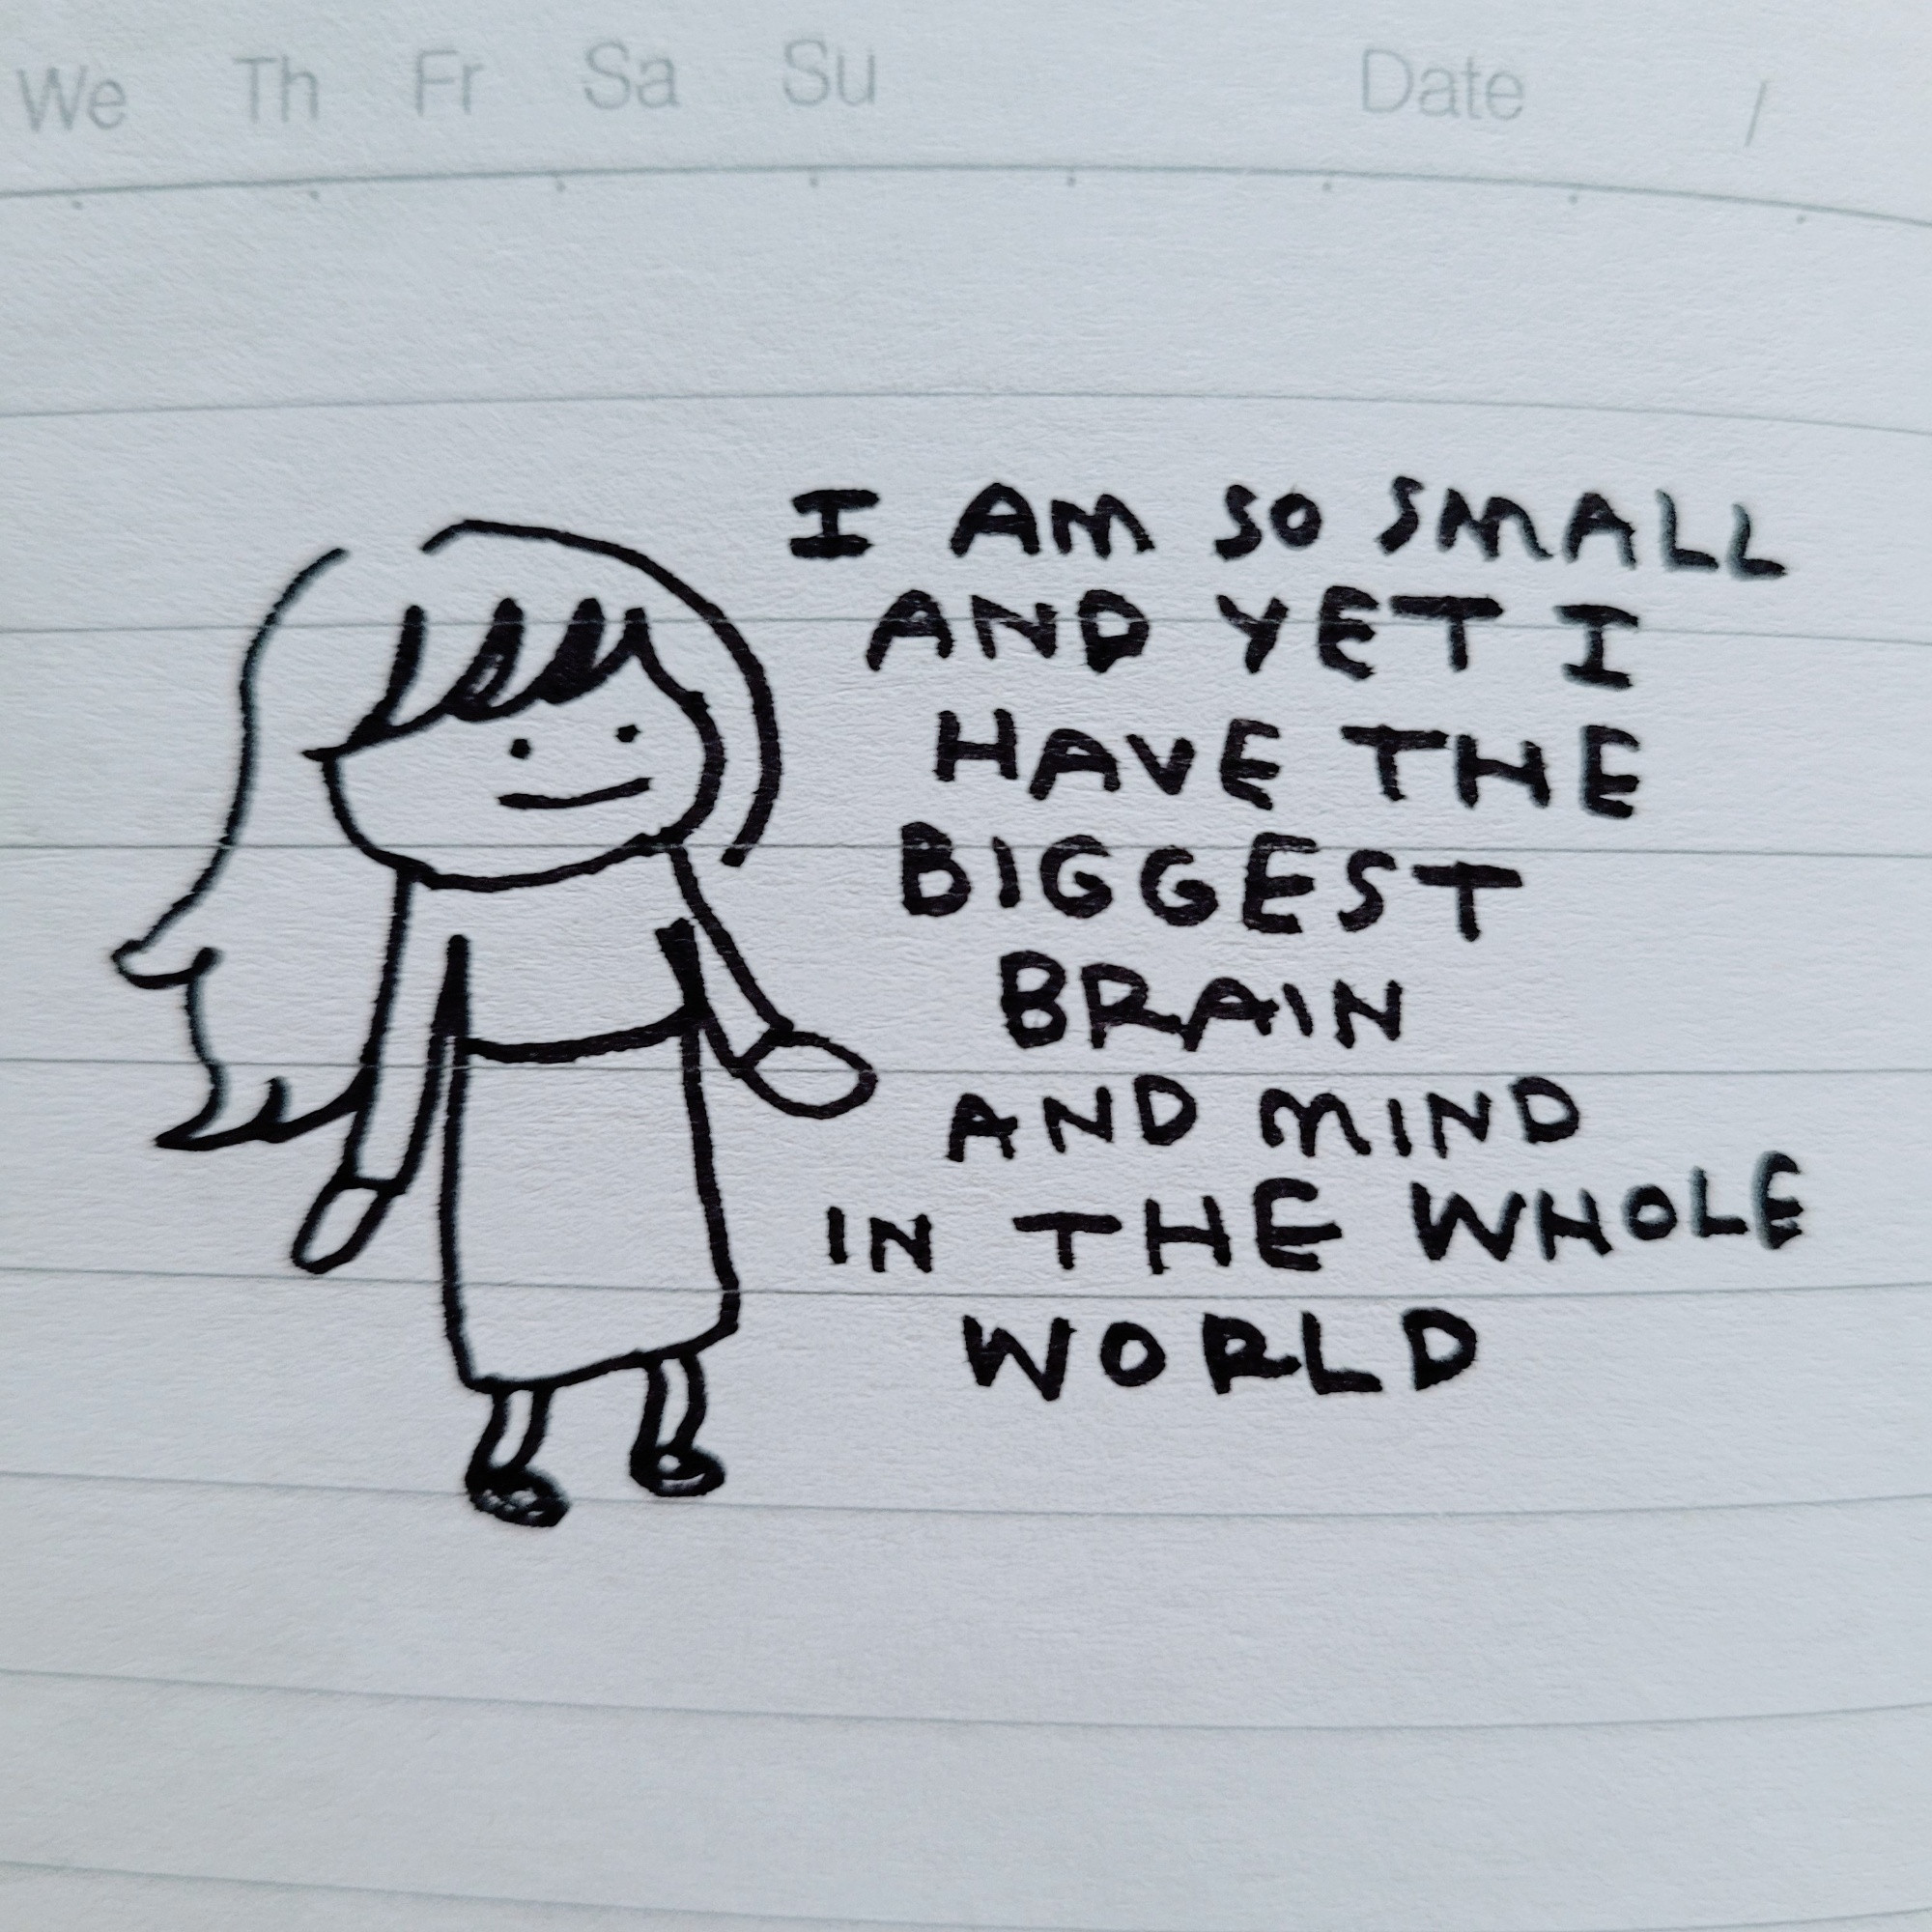 We Th Fr Sa Su Date /
I AM SO SMALL
AND YET I
HAVE THE
BIGGEST
BRAIN
AND MIND
IN THE WHOLE
WORLD